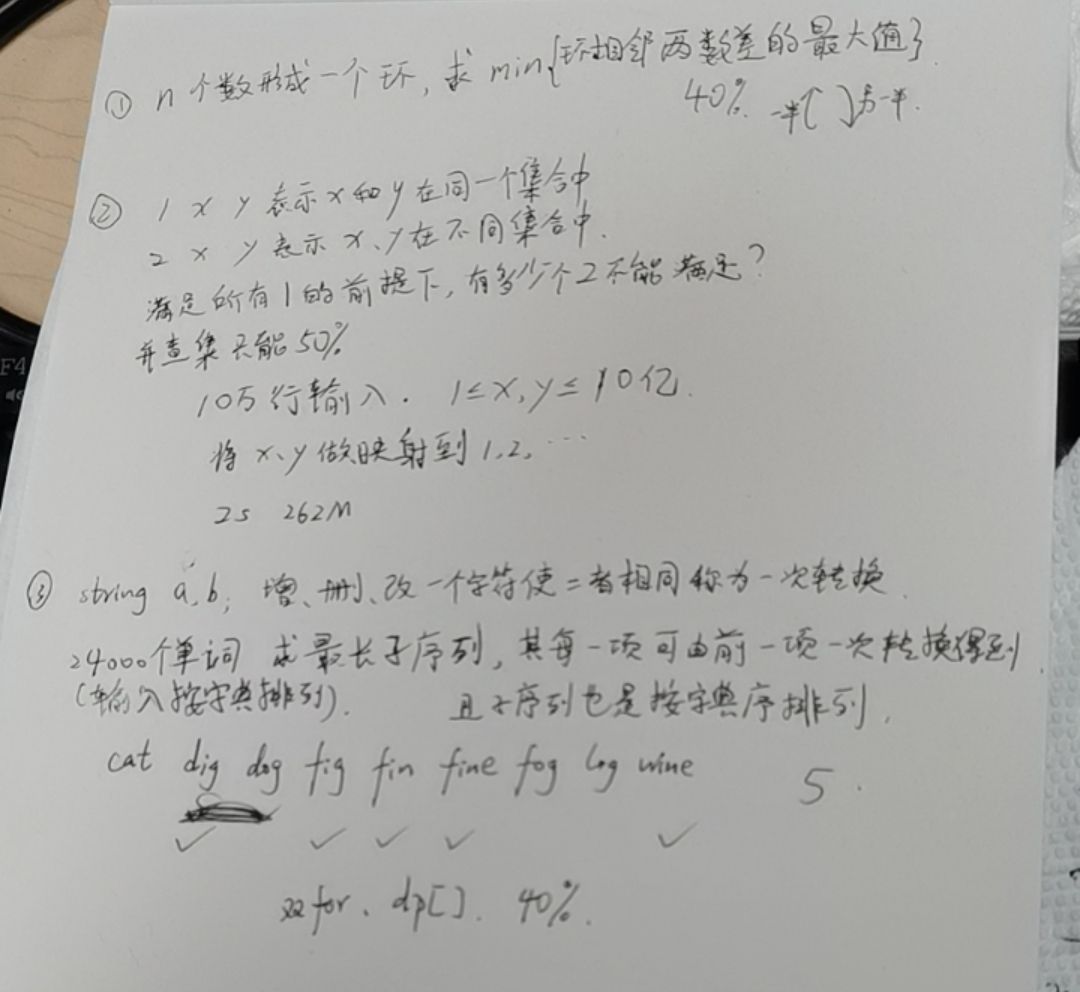 ① n个数形成一个环,求min{环相邻两数差的最大值}.
40%. 一半[ ]另一半.
② 1 x y 表示x和y在同一个集合中
2 x y 表示x、y在不同集合中.
满足所有1的前提下,有多少个2不能满足?
并查集只能50%
10万行输入. 1≤x,y≤10亿.
将x、y做映射到1,2,…
2s 262M
③ string a,b; 增、删、改一个字符使二者相同称为一次转换.
24000个单词 求最长子序列,其每一项可由前一项一次转换得到
(输入按字典排列). 且子序列也是按字典序排列.
cat dig dog fig fin fine fog log wine 5.
✓ ✓ ✓ ✓ ✓
双for、dp[]. 40%.
F4